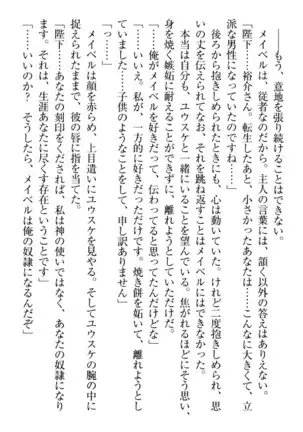 ――もう、意地など張り続けることはできない。
メイベルは、従者なのだから。主人の言葉には、頷く以外の答えはありえない。
「陛下……裕介さま。転生したあと、小さかったあなたは……こんなに大きくて、立
派な男性になっていたのですね……」
後ろから抱きしめられたときにも、心は動いていた。けれど二度抱きしめられ、思
いの丈を伝えられてなお、それを跳ね返すことはメイベルにはできなかった。
自分も、ユウスケと一緒にいることを望んでいる。焦がれるほどにそう思い、
身を焼く嫉妬に耐えることができずに、離れようとしていただけだ。
「……俺がメイベルを好きだって、伝わってると思ってたんだけどな」
「……いいえ。私が、一方的に好きだっただけです。焼き餅を妬いて、離れようとし
ていました……子供のようなことをして、申し訳ありません」
「っ……」
メイベルは顔を赤らめ、上目遣いにユウスケを見る。そしてユウスケの腕の中に
捉えられたままで、彼の唇に指で触れた。
「陛下……あなたの刻印をくだされば、私は神の使いではなく、あなたの奴隷になり
ます。それは、生涯あなたに尽くす存在ということです」
「……いいのか？　そうしたら、メイベルは俺の奴隷になるんだぞ」